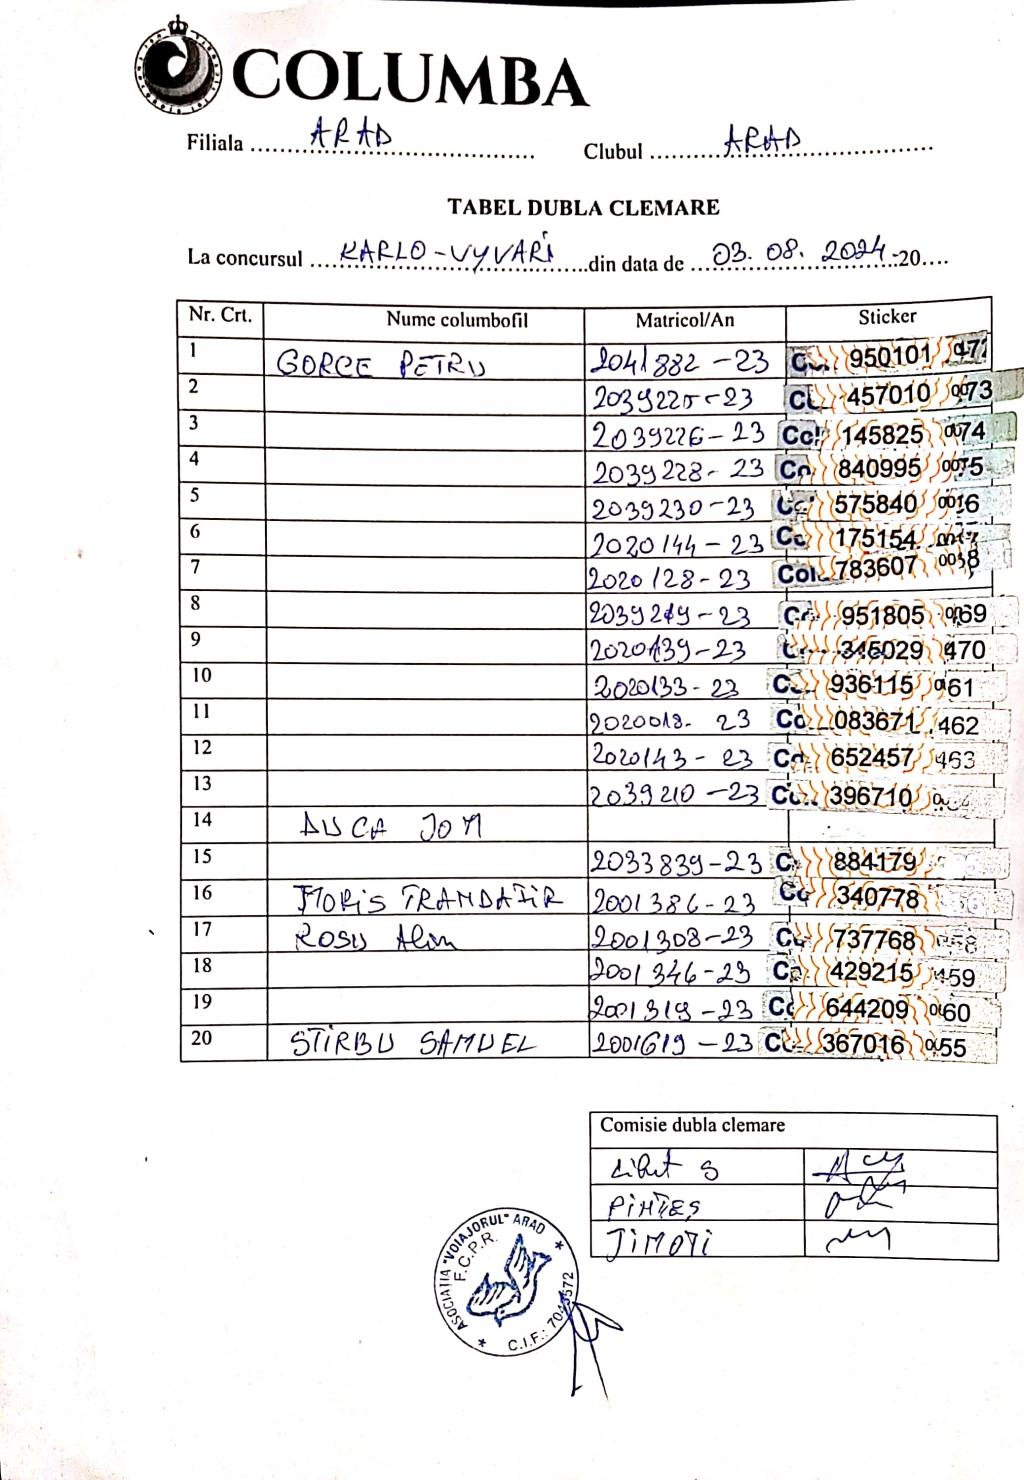 COLUMBA
Filiala ARAD Clubul ARAD
TABEL DUBLA CLEMARE
La concursul KARLO-VYVARI din data de 03. 08. 2024 -20....
Nr. Crt. Nume columbofil Matricol/An Sticker
1 GORCE PETRU 2041882-23 950101
2 2039225-23 457010 0073
3 2039226-23 145825 0074
4 2039228-23 840995 0075
5 2039230-23 575840
6 2020144-23 175154
7 2020128-23 783607
8 2039219-23 951805
9 2020139-23 345029 470
10 2020133-23 936115 461
11 2020018-23 083671 462
12 2020143-23 652457 463
13 2039210-23 396710
14 DUCA ION
15 2033839-23 884179
16 FLORIS TRANDAFIR 2001386-23 340778
17 ROSU Alin 2001308-23 737768
18 2001346-23 429215 459
19 2001319-23 644209
20 STIRBU SAMUEL 2001619-23 367016
Comisie dubla clemare
PINTES
ASOCIAȚIA "VOIAJORUL" ARAD
F.C.P.R.
C.I.F.: